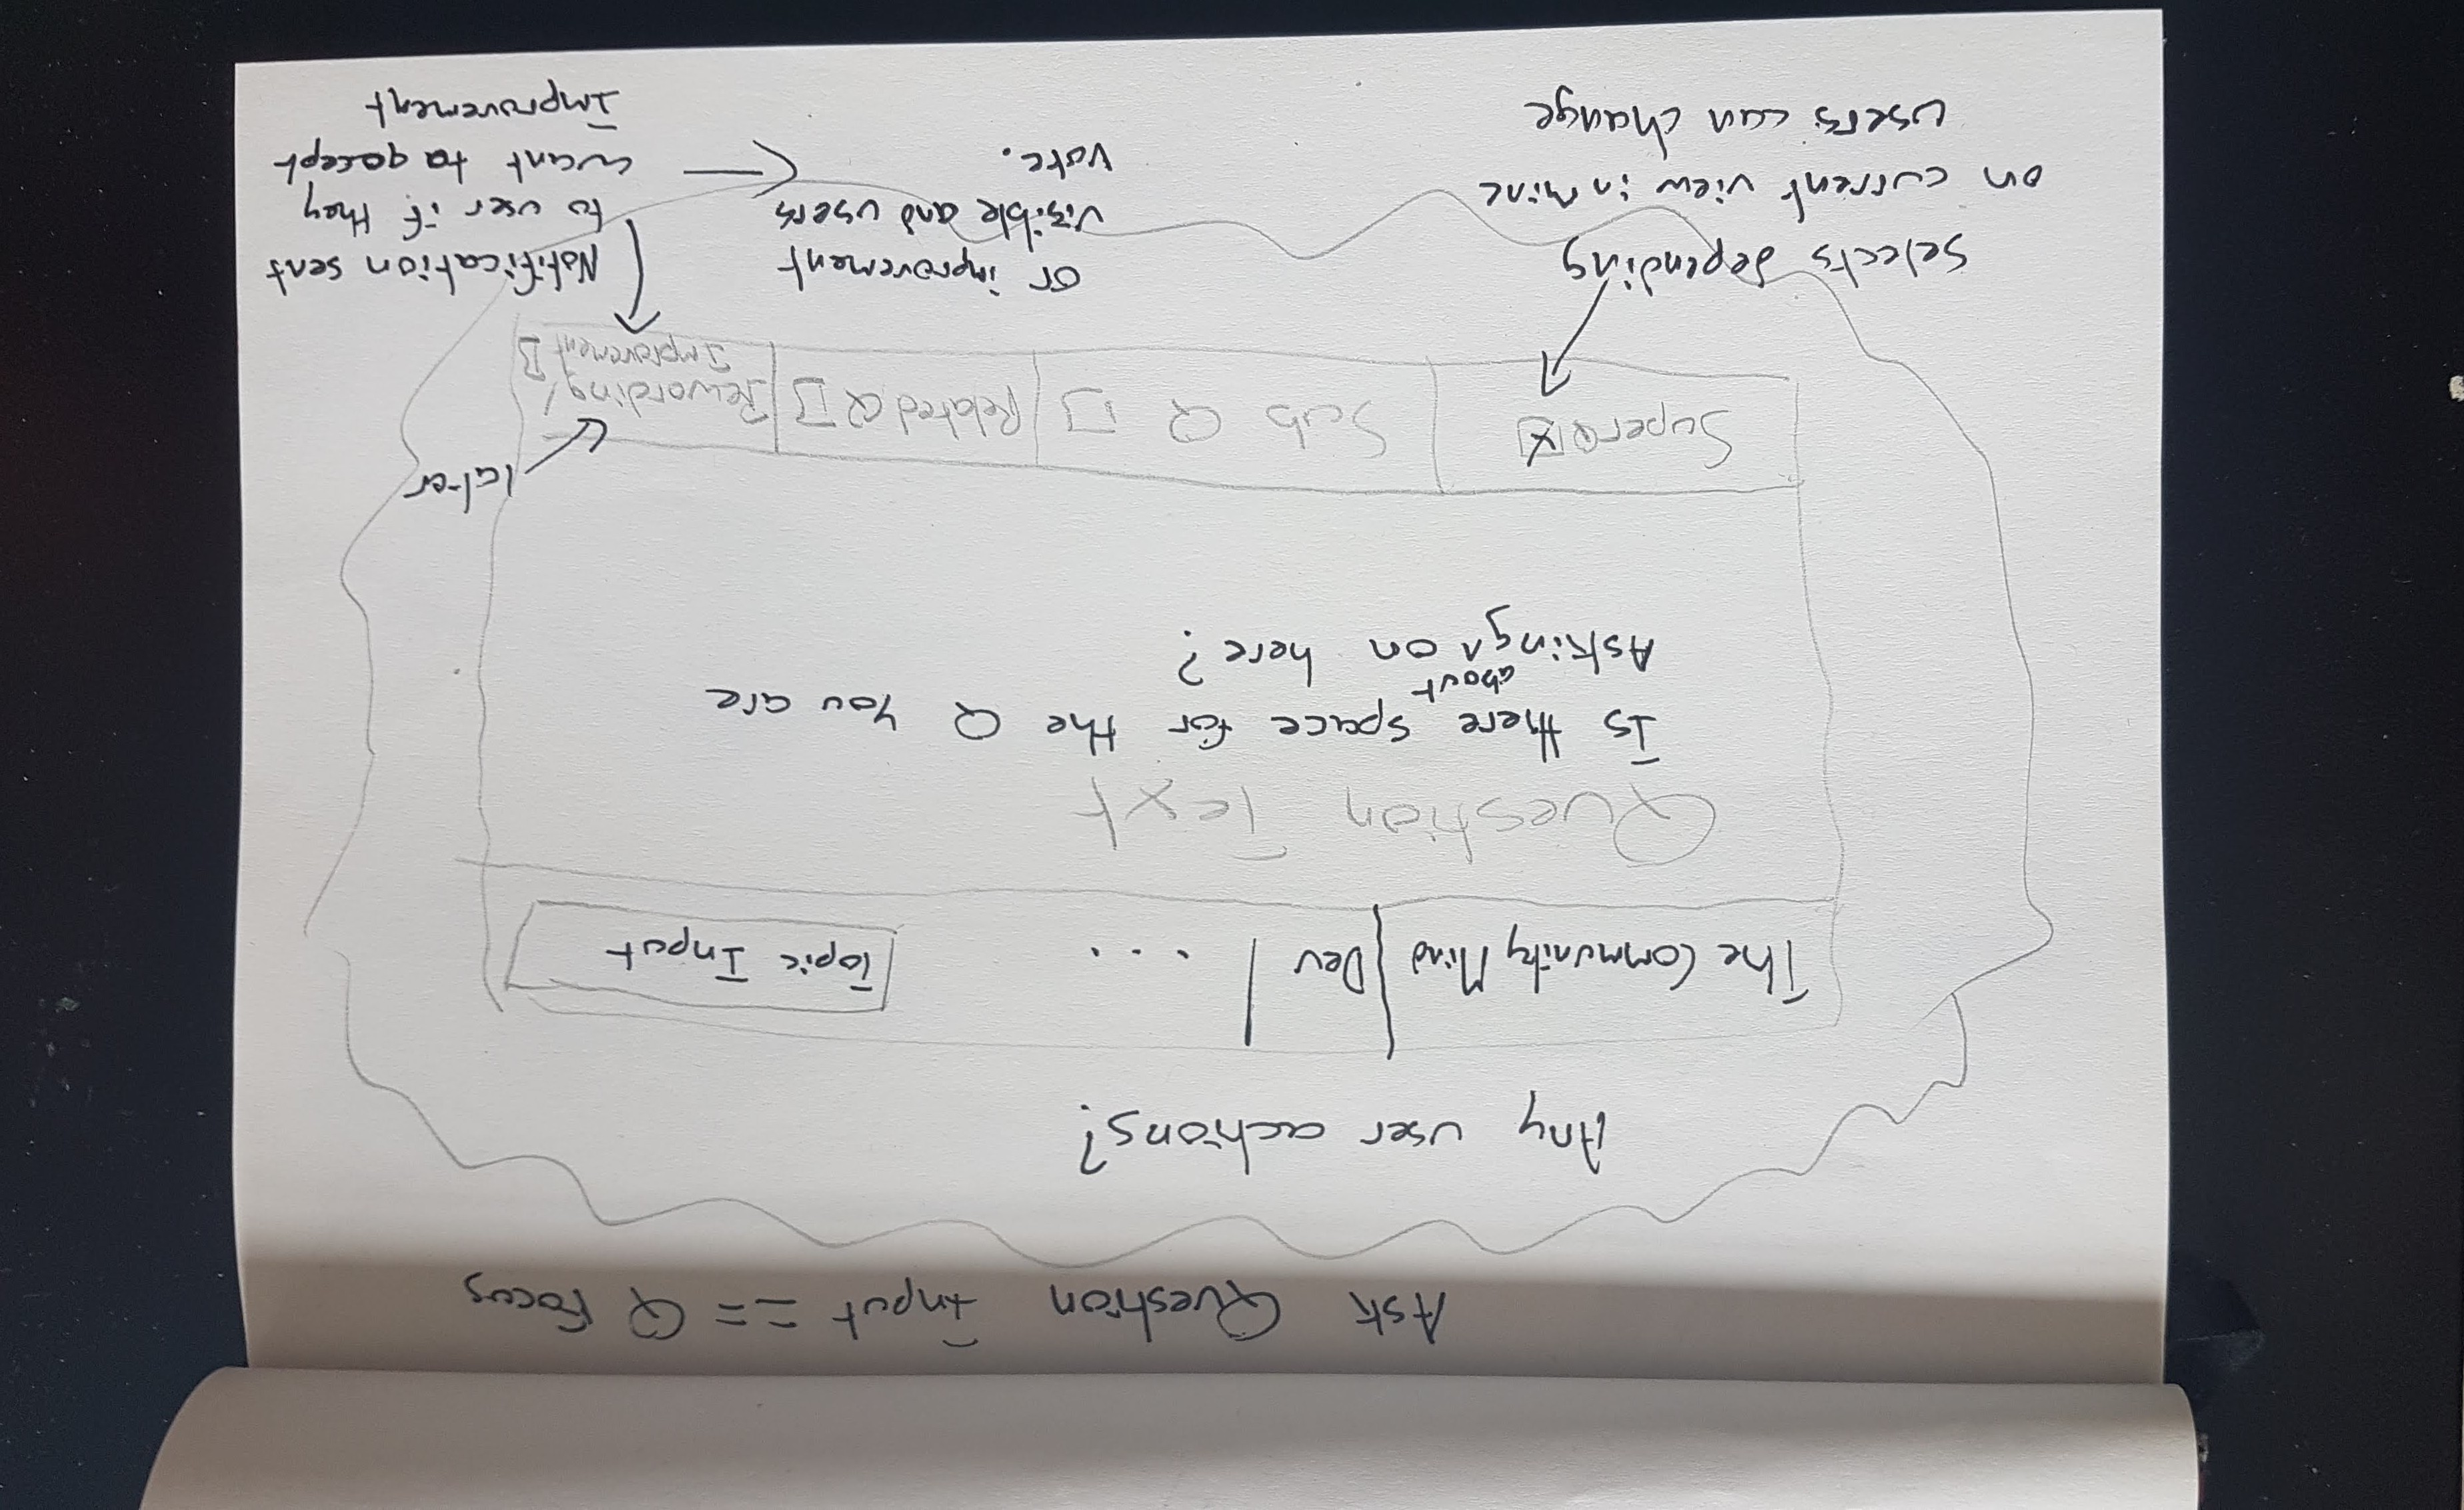 Ask Question Input == Q Focus
Any user actions?
The Community Mind | Dev | ...
Topic Input
Question Text
Is there space for the Q you are
Asking ^ about on here?
later
SuperQ [x]
Sub Q []
Related Q []
Rewording/
Improvement []
selects depending
on current view in
users can change
or improvement
visible and users
vote.
Notification sent
to user if they
want to accept
Improvement